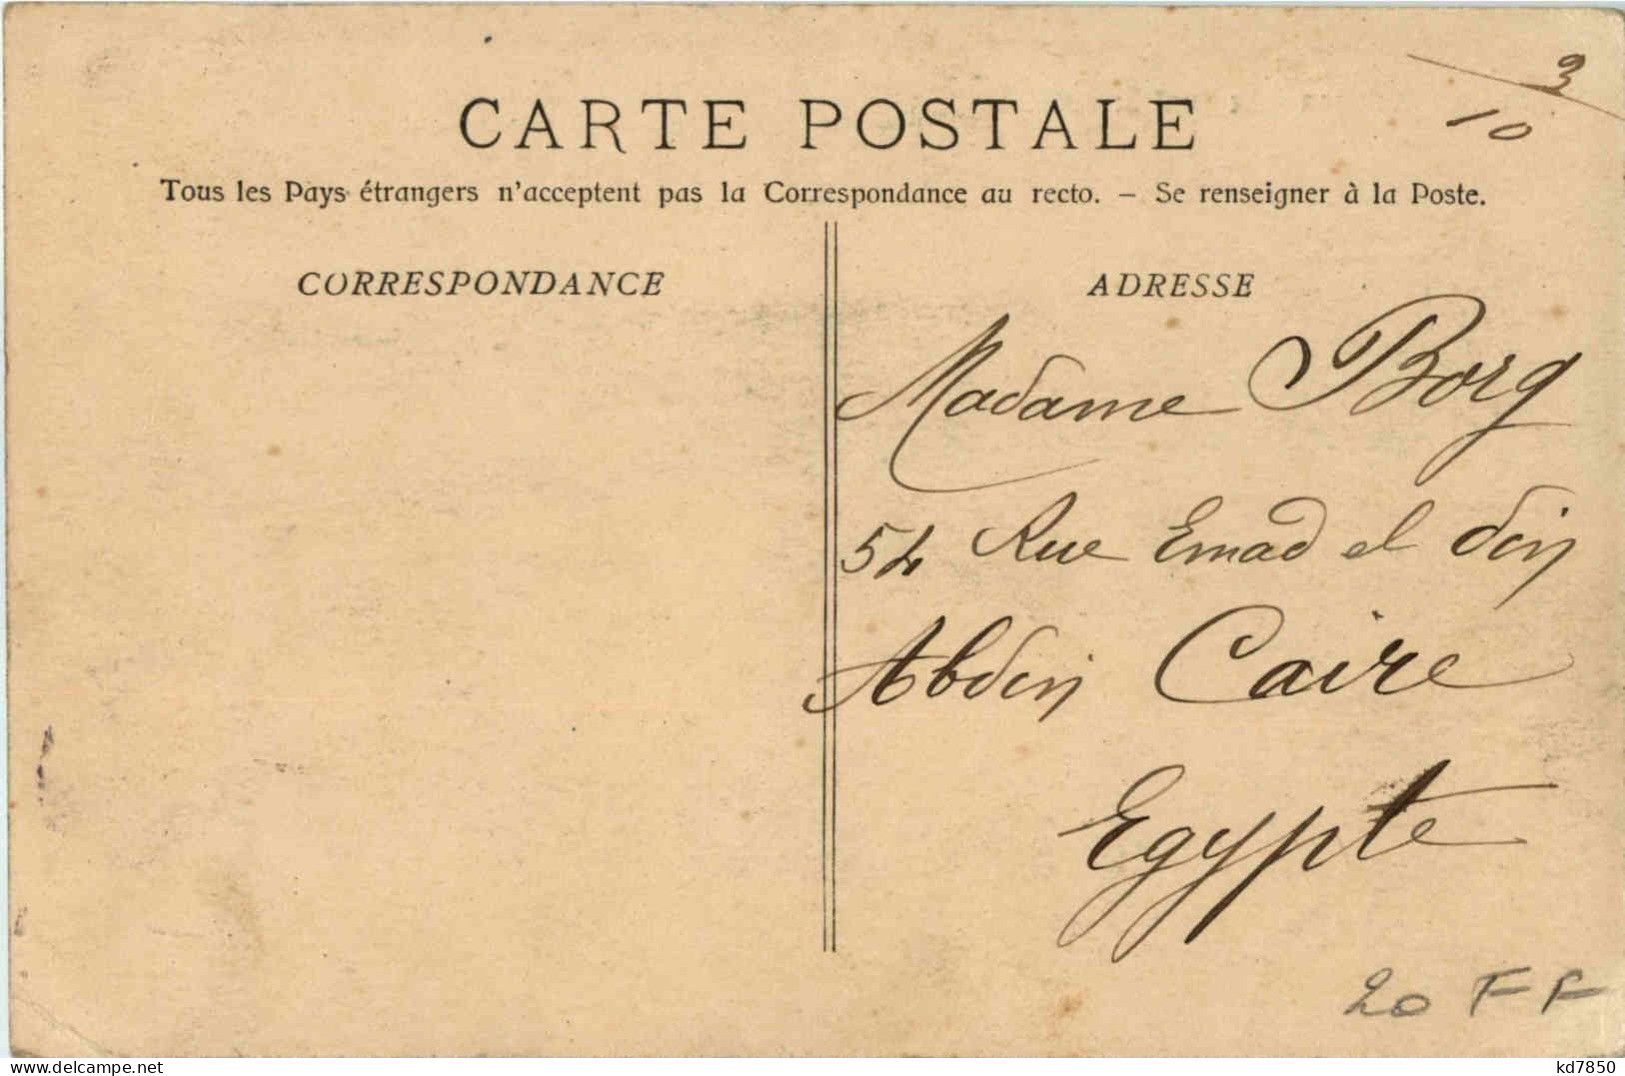 3
10
CARTE POSTALE
Tous les Pays étrangers n'acceptent pas la Correspondance au recto. — Se renseigner à la Poste.
CORRESPONDANCE
ADRESSE
Madame Borg
54 Rue Emad el din
Abdin Caire
Egypte
20 FF
www.delcampe.net
kd7850